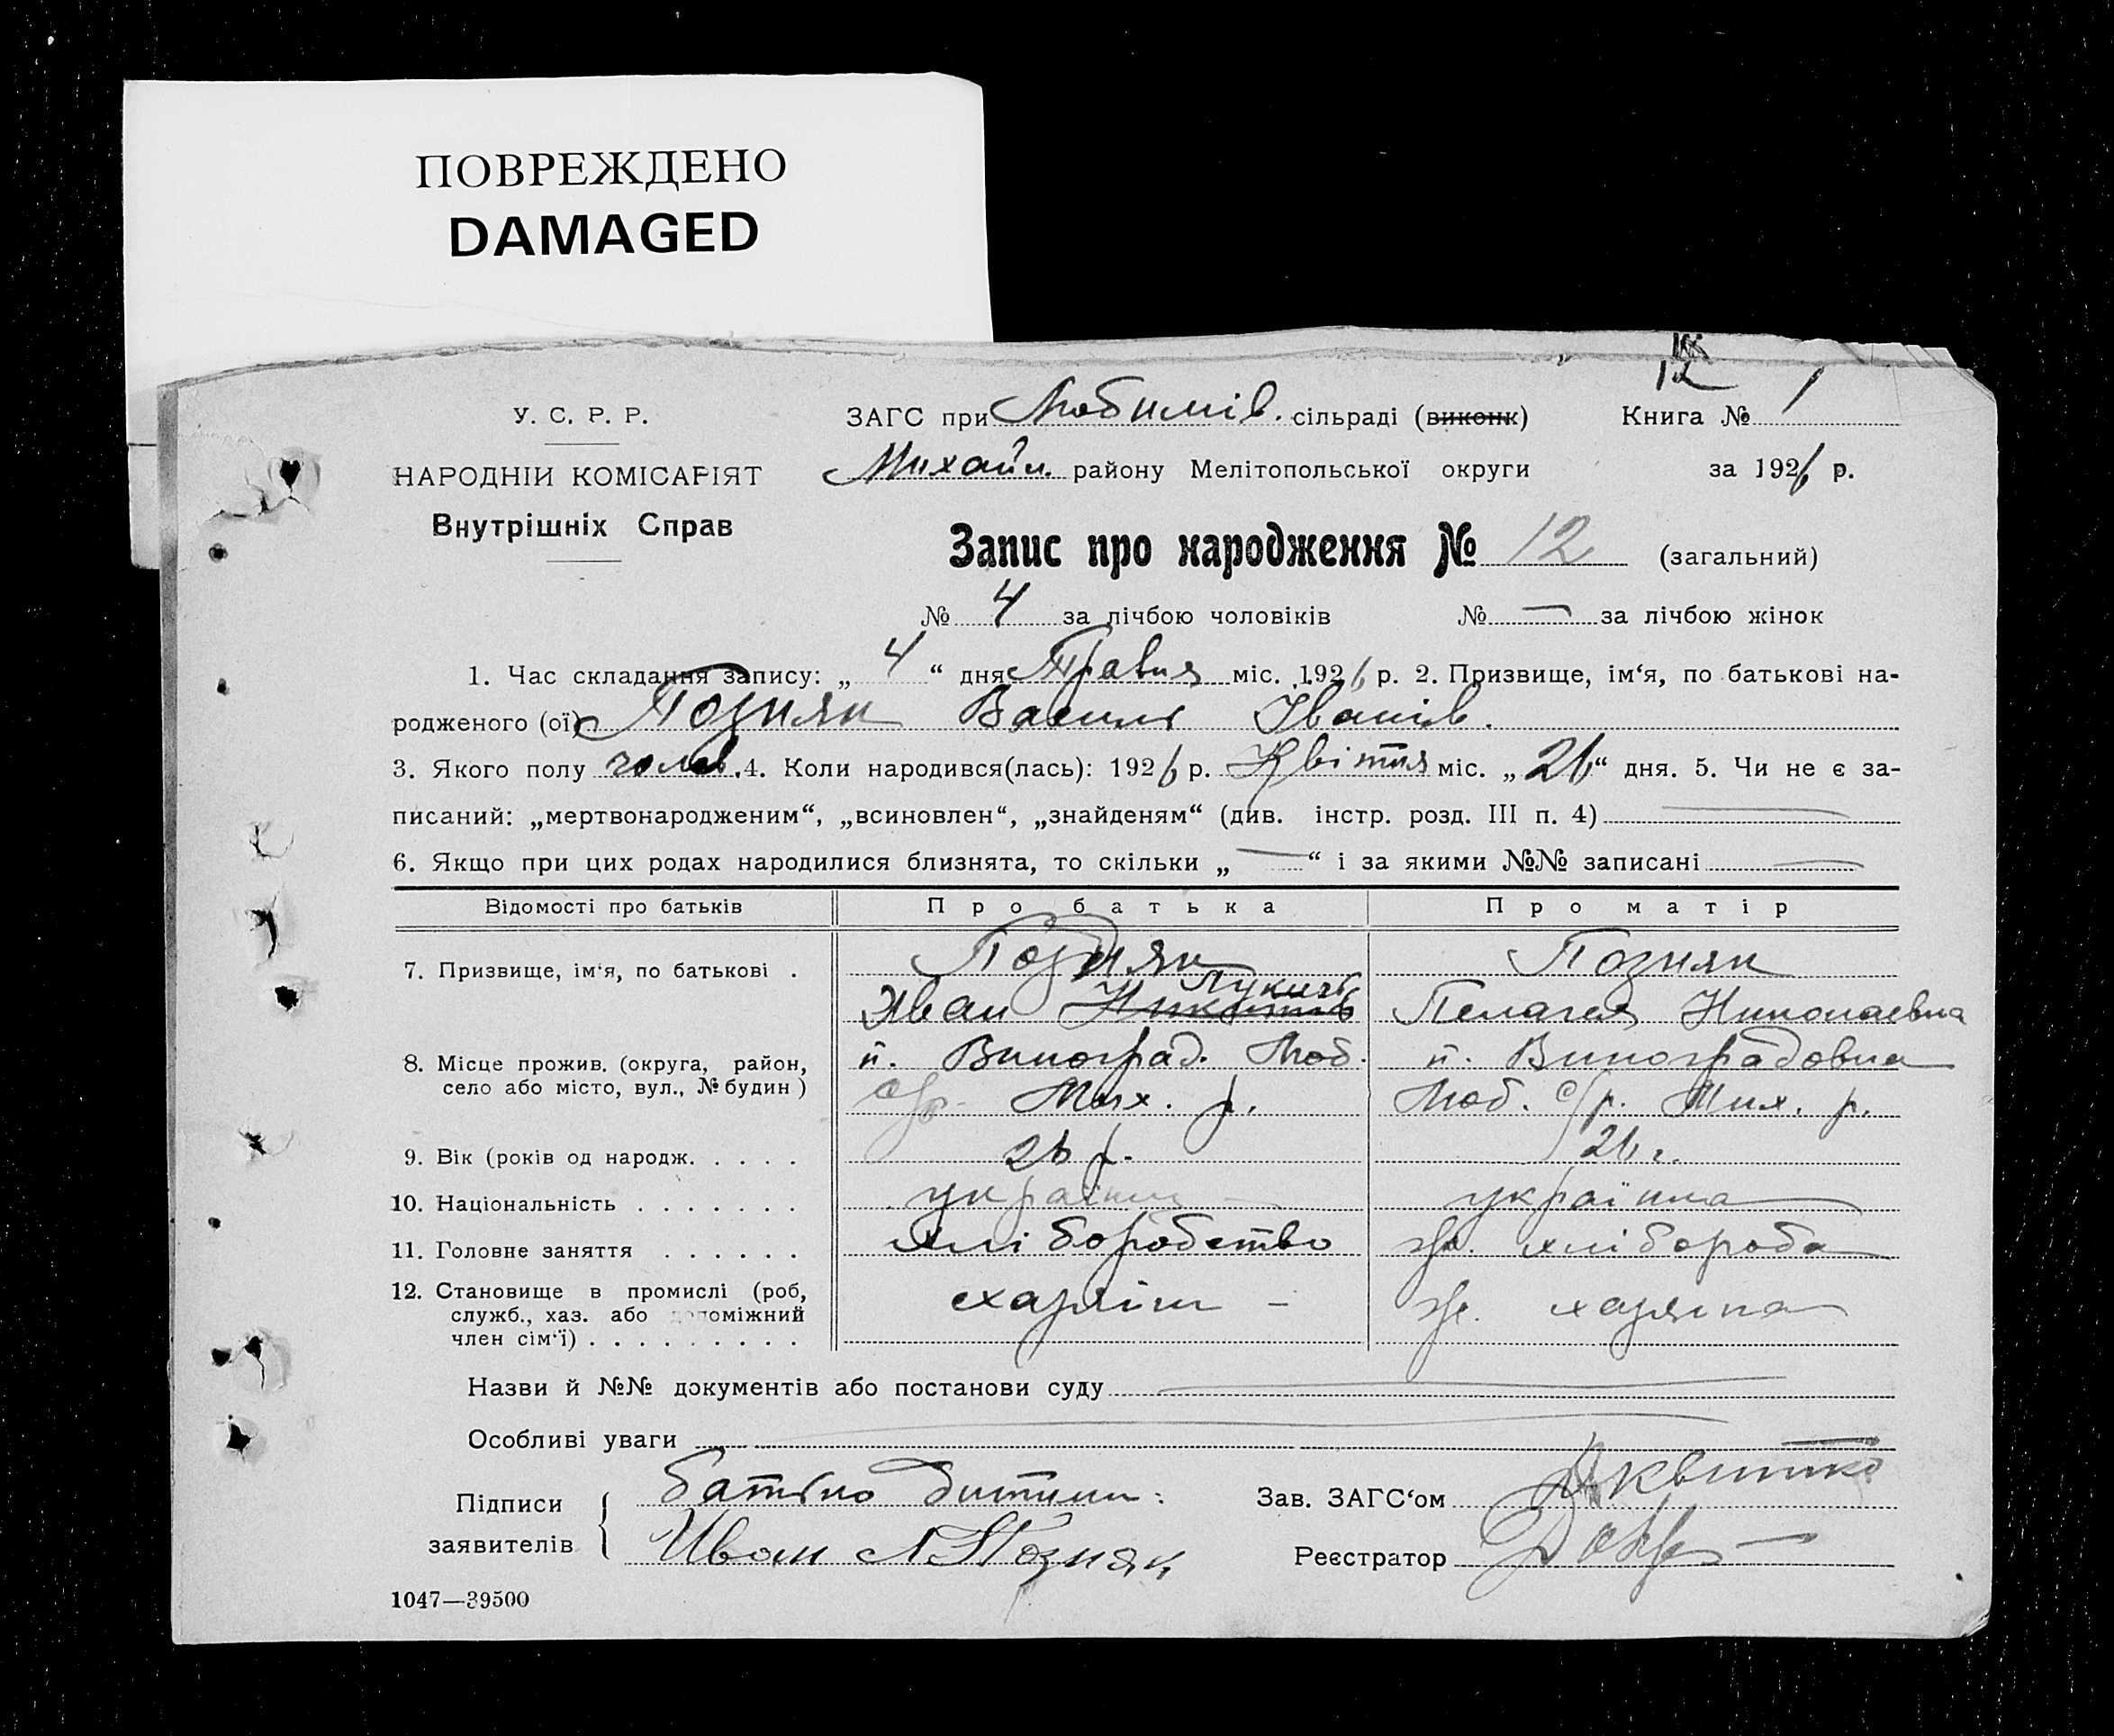 ПОВРЕЖДЕНО
DAMAGED
12
У. С. Р. Р.
ЗАГС при Любимів. сільраді (виконк)
Книга № 1
НАРОДНІЙ КОМІСАРІЯТ
Михайл. району Мелітопольської округи
за 1926 р.
Внутрішніх Справ
Запис про народження № 12 (загальний)
№ 4 за лічбою чоловіків № — за лічбою жінок
1. Час складання запису: „ 4 “ дня Травня міс. 1926 р. 2. Призвище, ім‘я, по батькові на-
родженого (ої) Позняк Василь Іванів.
3. Якого полу чолов. 4. Коли народився(лась): 1926 р. Квітня міс. „ 26 “ дня. 5. Чи не є за-
писаний: „мертвонародженим“, „всиновлен“, „знайденям“ (див. інстр. розд. III п. 4) —
6. Якщо при цих родах народилися близнята, то скільки „ — “ і за якими №№ записані —
Відомості про батьків
Про батька
Про матір
7. Призвище, ім‘я, по батькові .
Позняк
Лукичъ
Иван Никитиъ
Позняк
Пелагея Николаевна
8. Місце прожив. (округа, район,
село або місто, вул., № будин )
п. Виноград. Люб.
с/р. Мих. р.
п. Виноградовна
Люб. с/р. Мих. р.
9. Вік (років од народж. . . . .
26 р.
26 г.
10. Національність . . . . . . .
українц —
українка
11. Головне заняття . . . . . .
хліборобство
хлібороба
12. Становище в промислі (роб,
служб., хаз. або допоміжний
член сім‘ї) . . . . . . . . .
хазяїн —
хазяина
Назви й №№ документів або постанови суду —
Особливі уваги —
Підписи
заявителів
батько дитини:
Иван Л Позняк
Зав. ЗАГС‘ом Квитко
Реєстратор
1047—39500